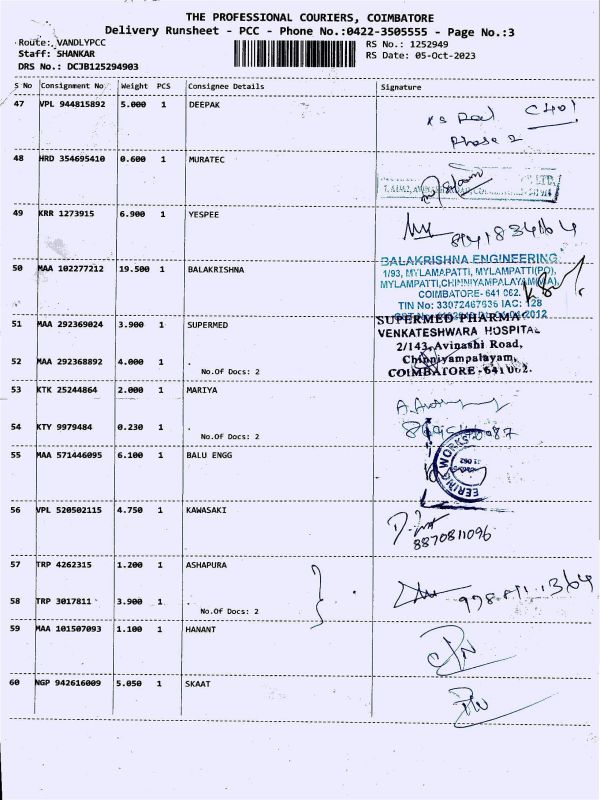 THE PROFESSIONAL COURIERS, COIMBATORE
Delivery Runsheet - PCC - Phone No.:0422-3505555 - Page No.:3
Route: VANDLYPCC RS No.: 1252949
Staff: SHANKAR RS Date: 05-Oct-2023
DRS No.: DCJB125294903
S No Consignment No Weight PCS Consignee Details Signature
47 VPL 944815892 5.000 1 DEEPAK
Phase 2
48 HRD 354695410 0.600 1 MURATEC
49 KRR 1273915 6.900 1 YESPEE
50 MAA 102277212 19.500 1 BALAKRISHNA
BALAKRISHNA ENGINEERING
1/93, MYLAMAPATTI, MYLAMPATTI(PO),
MYLAMPATTI,CHINNIYAMPALAYAM(VIA),
COIMBATORE- 641 062.
TIN No: 33072467635 IAC: 128
51 MAA 292369024 3.900 1 SUPERMED
SUPERMED PHARMA
VENKATESHWARA HOSPITAL
2/143, Avinashi Road,
Chinniyampalayam,
COIMBATORE - 641 062.
52 MAA 292368892 4.000 1 .
No.Of Docs: 2
53 KTK 25244864 2.000 1 MARIYA
54 KTY 9979484 0.230 1 .
No.Of Docs: 2
55 MAA 571446095 6.100 1 BALU ENGG
EERING WORKS
56 VPL 520502115 4.750 1 KAWASAKI
8870811096
57 TRP 4262315 1.200 1 ASHAPURA
58 TRP 3017811 3.900 1 .
No.Of Docs: 2
59 MAA 101507093 1.100 1 HANANT
60 NGP 942616009 5.050 1 SKAAT